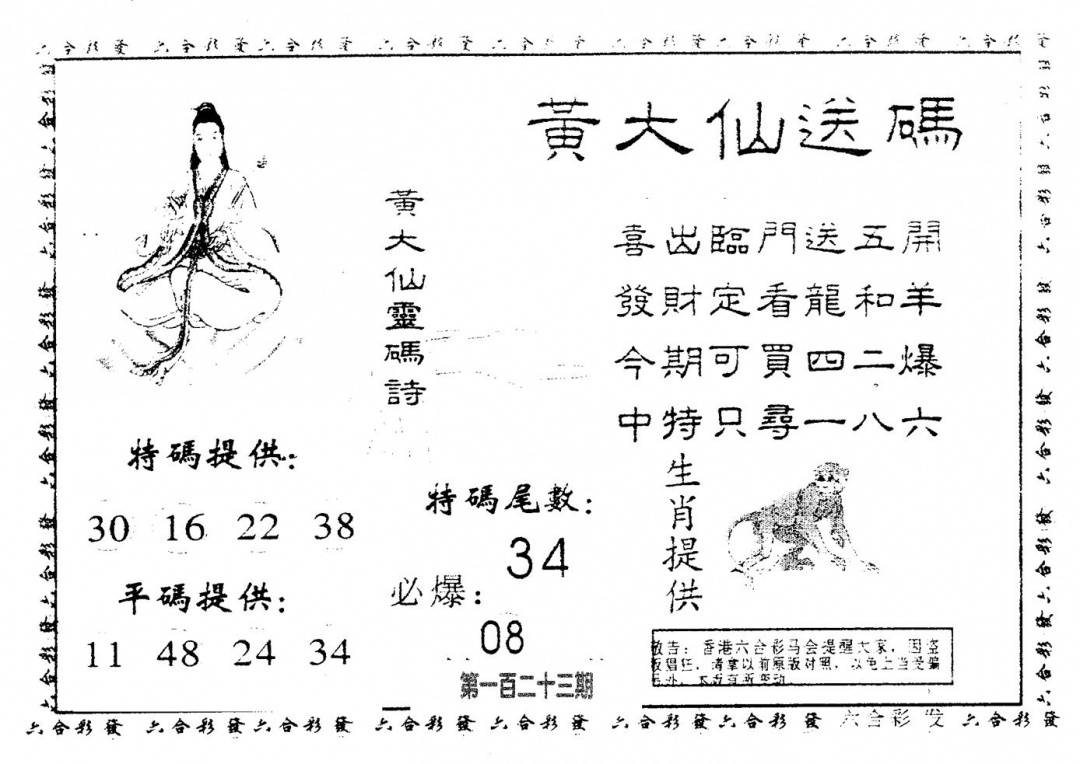 六合彩發 六合彩發 六合彩發 六合彩發
黃大仙送碼
黃大仙靈碼詩
喜出臨門送五開
發財定看龍和羊
今期可買四二爆
中特只尋一八六
特碼提供：
30 16 22 38
平碼提供：
11 48 24 34
特碼尾數：
34
必爆：
08
第一百二十三期
生肖提供
敬告：香港六合彩马会提醒大家，因盗
版猖狂，请拿以前原版对照，以免上当受骗
六合彩發 六合彩發 六合彩發 六合彩發 六合彩發 六合彩發 六合彩发 六合彩發